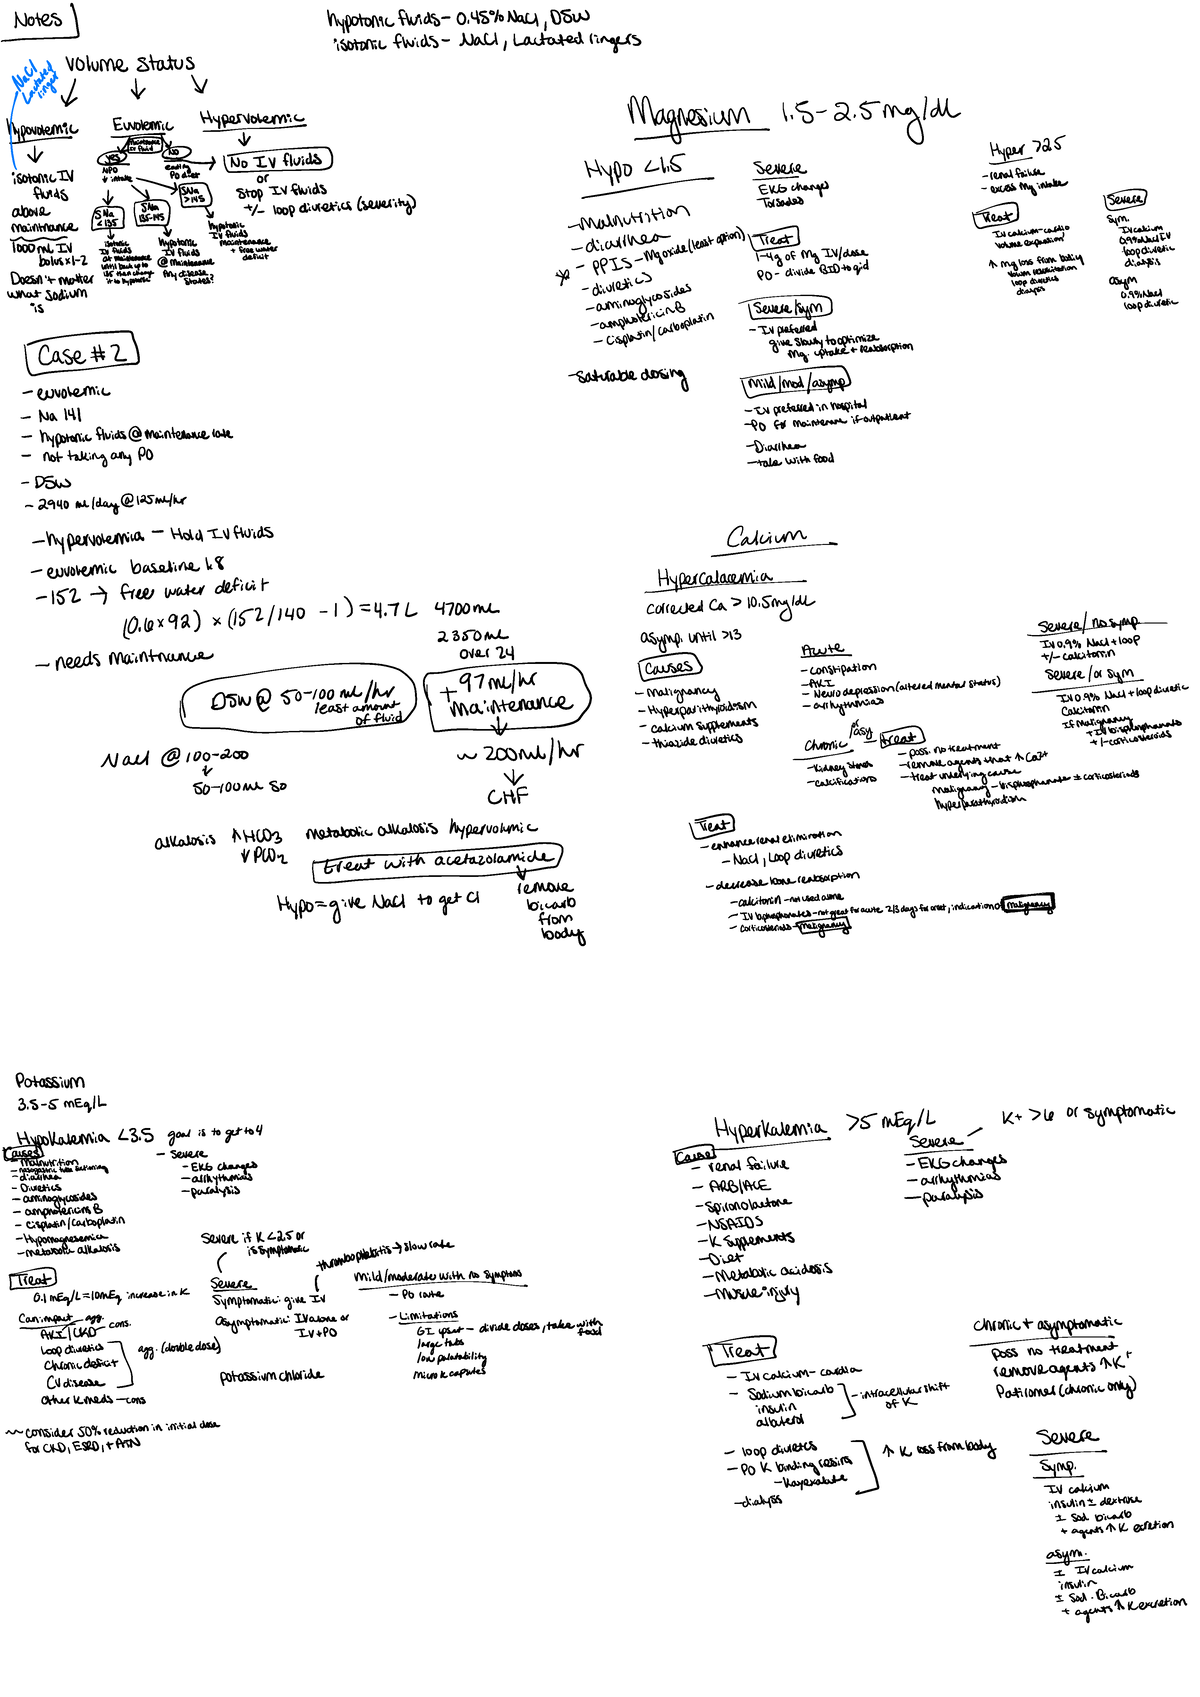 Notes
hypotonic fluids - 0.45% NaCl, D5W
isotonic fluids - NaCl, Lactated ringers
Volume Status
NaCl
Lactated
ringer
hypovolemic
isotonic IV
fluids
above
maintnance
1000 mL IV
bolus x1-2
Doesn't matter
what sodium
is
Euvolemic
maintenance
IV fluid
YES
NPO
↓ intake
NO
eating
PO diet
SNa
<135
isotonic
IV fluids
at maintenance
until back up to
135 then change
it to hypotonic
SNa
135-145
hypotonic
IV fluids
@ maintenance
Any disease
states?
SNa
>145
hypotonic
IV fluids
maintenance
+ free water
deficit
Hypervolemic
No IV fluids
or
Stop IV fluids
+/- loop diuretics (severity)
Case #2
- euvolemic
- Na 141
- hypotonic fluids @ maintenance rate
- not taking any PO
- D5W
- 2940 mL/day @ 125 mL/hr
- hypervolemia - Hold IV fluids
- euvolemic baseline 1.8
- 152 → free water deficit
(0.6 x 92) x (152/140 - 1) = 4.7 L 4700 mL
2350 mL
over 24
- needs maintnance
D5W @ 50-100 mL/hr
least amount
of fluid
97 mL/hr
+ maintenance
~ 200 mL/hr
CHF
NaCl @ 100-200
50-100 mL so
alkalosis ↑HCO3 metabolic alkalosis hypervolmic
↓PCO2
treat with acetazolamide
remove
bicarb
from
body
Hypo = give NaCl to get Cl
Magnesium 1.5-2.5 mg/dL
Hypo <1.5
- Malnutrition
- diarrhea
* - PPIS - Mg oxide (least option)
- diuretics
- aminoglycosides
- amphotericin B
- Cisplatin/carboplatin
- saturable dosing
Severe
EKG changes
Torsades
Treat
1-4g of Mg IV/dose
PO - divide BID to qid
Severe/sym
- IV preferred
give slowly to optimize
Mg. uptake + reabsorption
Mild/mod/asymp
- IV preferred in hospital
- PO for maintenance if outpatient
- Diarrhea
- take with food
Hyper >2.5
- renal failure
- excess Mg intake
Treat
IV calcium - cardio
volume expansion
↑ mg loss from body
volum resuscitation
loop diuretics
dialysis
Severe
Sym.
IV calcium
0.9% NaCl IV
loop diuretic
dialysis
asym
0.9% NaCl
loop diuretic
Calcium
Hypercalacemia
corrected Ca > 10.5 mg/dL
asymp. until >13
Causes
- Malignancy
- Hyperparithyroidism
- calcium supplements
- thiazide diuretics
Acute
- constipation
- AKI
- Neuro depression (altered mental status)
- arrhythmias
Chronic or asy
- kidney stones
- calcifications
treat
- poss. no treatment
- remove agents that ↑ Ca2+
- treat underlying cause
Malignancy - bisphosphonate ± corticosteroids
hyperparathyroidism
Severe/no symp
IV 0.9% NaCl + loop
+/- calcitonin
Severe/or sym
IV 0.9% NaCl + loop diuretic
Calcitonin
If malignancy
+ IV bisphosphonates
+/- corticosteroids
Treat
- enhance renal elimination
- NaCl, Loop diuretics
- decrease bone reabsorption
- calcitonin - not used alone
- IV bisphosphonates - not great for acute 2/3 days for onset, indication of malignancy
- corticosteroids - malignancy
Potassium
3.5-5 mEq/L
Hypokalemia <3.5 goal is to get to 4
Causes
- Malnutrition
- nasogastric tube suctioning
- diarrhea
- Diuretics
- aminoglycosides
- amphotericins B
- Cisplatin/Carboplatin
- Hypomagnesemia
- metabolic alkalosis
- Severe
- EKG changes
- arrhythmias
- paralysis
Treat
0.1 mEq/L = 10 mEq increase in K
Can impact agg.
AKI/CKD cons.
loop diuretics
Chronic deficit
CV disease
agg. (double dose)
other K meds - cons
~ consider 50% reduction in initial dose
for CKD, ESRD, + ATN
Severe if K <2.5 or
is symptomatic
Severe
Symptomatic: give IV
asymptomatic: IV alone or
IV + PO
thrombophlebitis → slow rate
potassium chloride
Mild/moderate with no symptoms
- PO rate
- Limitations
GI upset - divide doses, take with food
large tabs
low palatability
micro K capsules
Hyperkalemia >5 mEq/L
Cause
- renal failure
- ARB/ACE
- Spironolactone
- NSAIDS
- K supplements
- Diet
- Metabolic acidosis
- Muscle injury
Severe
K+ >6 or symptomatic
- EKG changes
- arrhythmias
- paralysis
Treat
- IV calcium - cardia
- Sodium bicarb
insulin
albuterol
- intracellular shift
of K
- loop diuretics
- PO K binding resins
- kayexalate
- dialysis
↑ K loss from body
Chronic + asymptomatic
poss no treatment
remove agents ↑ K+
Patiromer (chronic only)
Severe
Symp.
IV calcium
insulin ± dextrose
± Sod bicarb
+ agents ↑ K excretion
asym.
± IV calcium
insulin
± Sod. Bicarb
+ agents ↑ K excretion